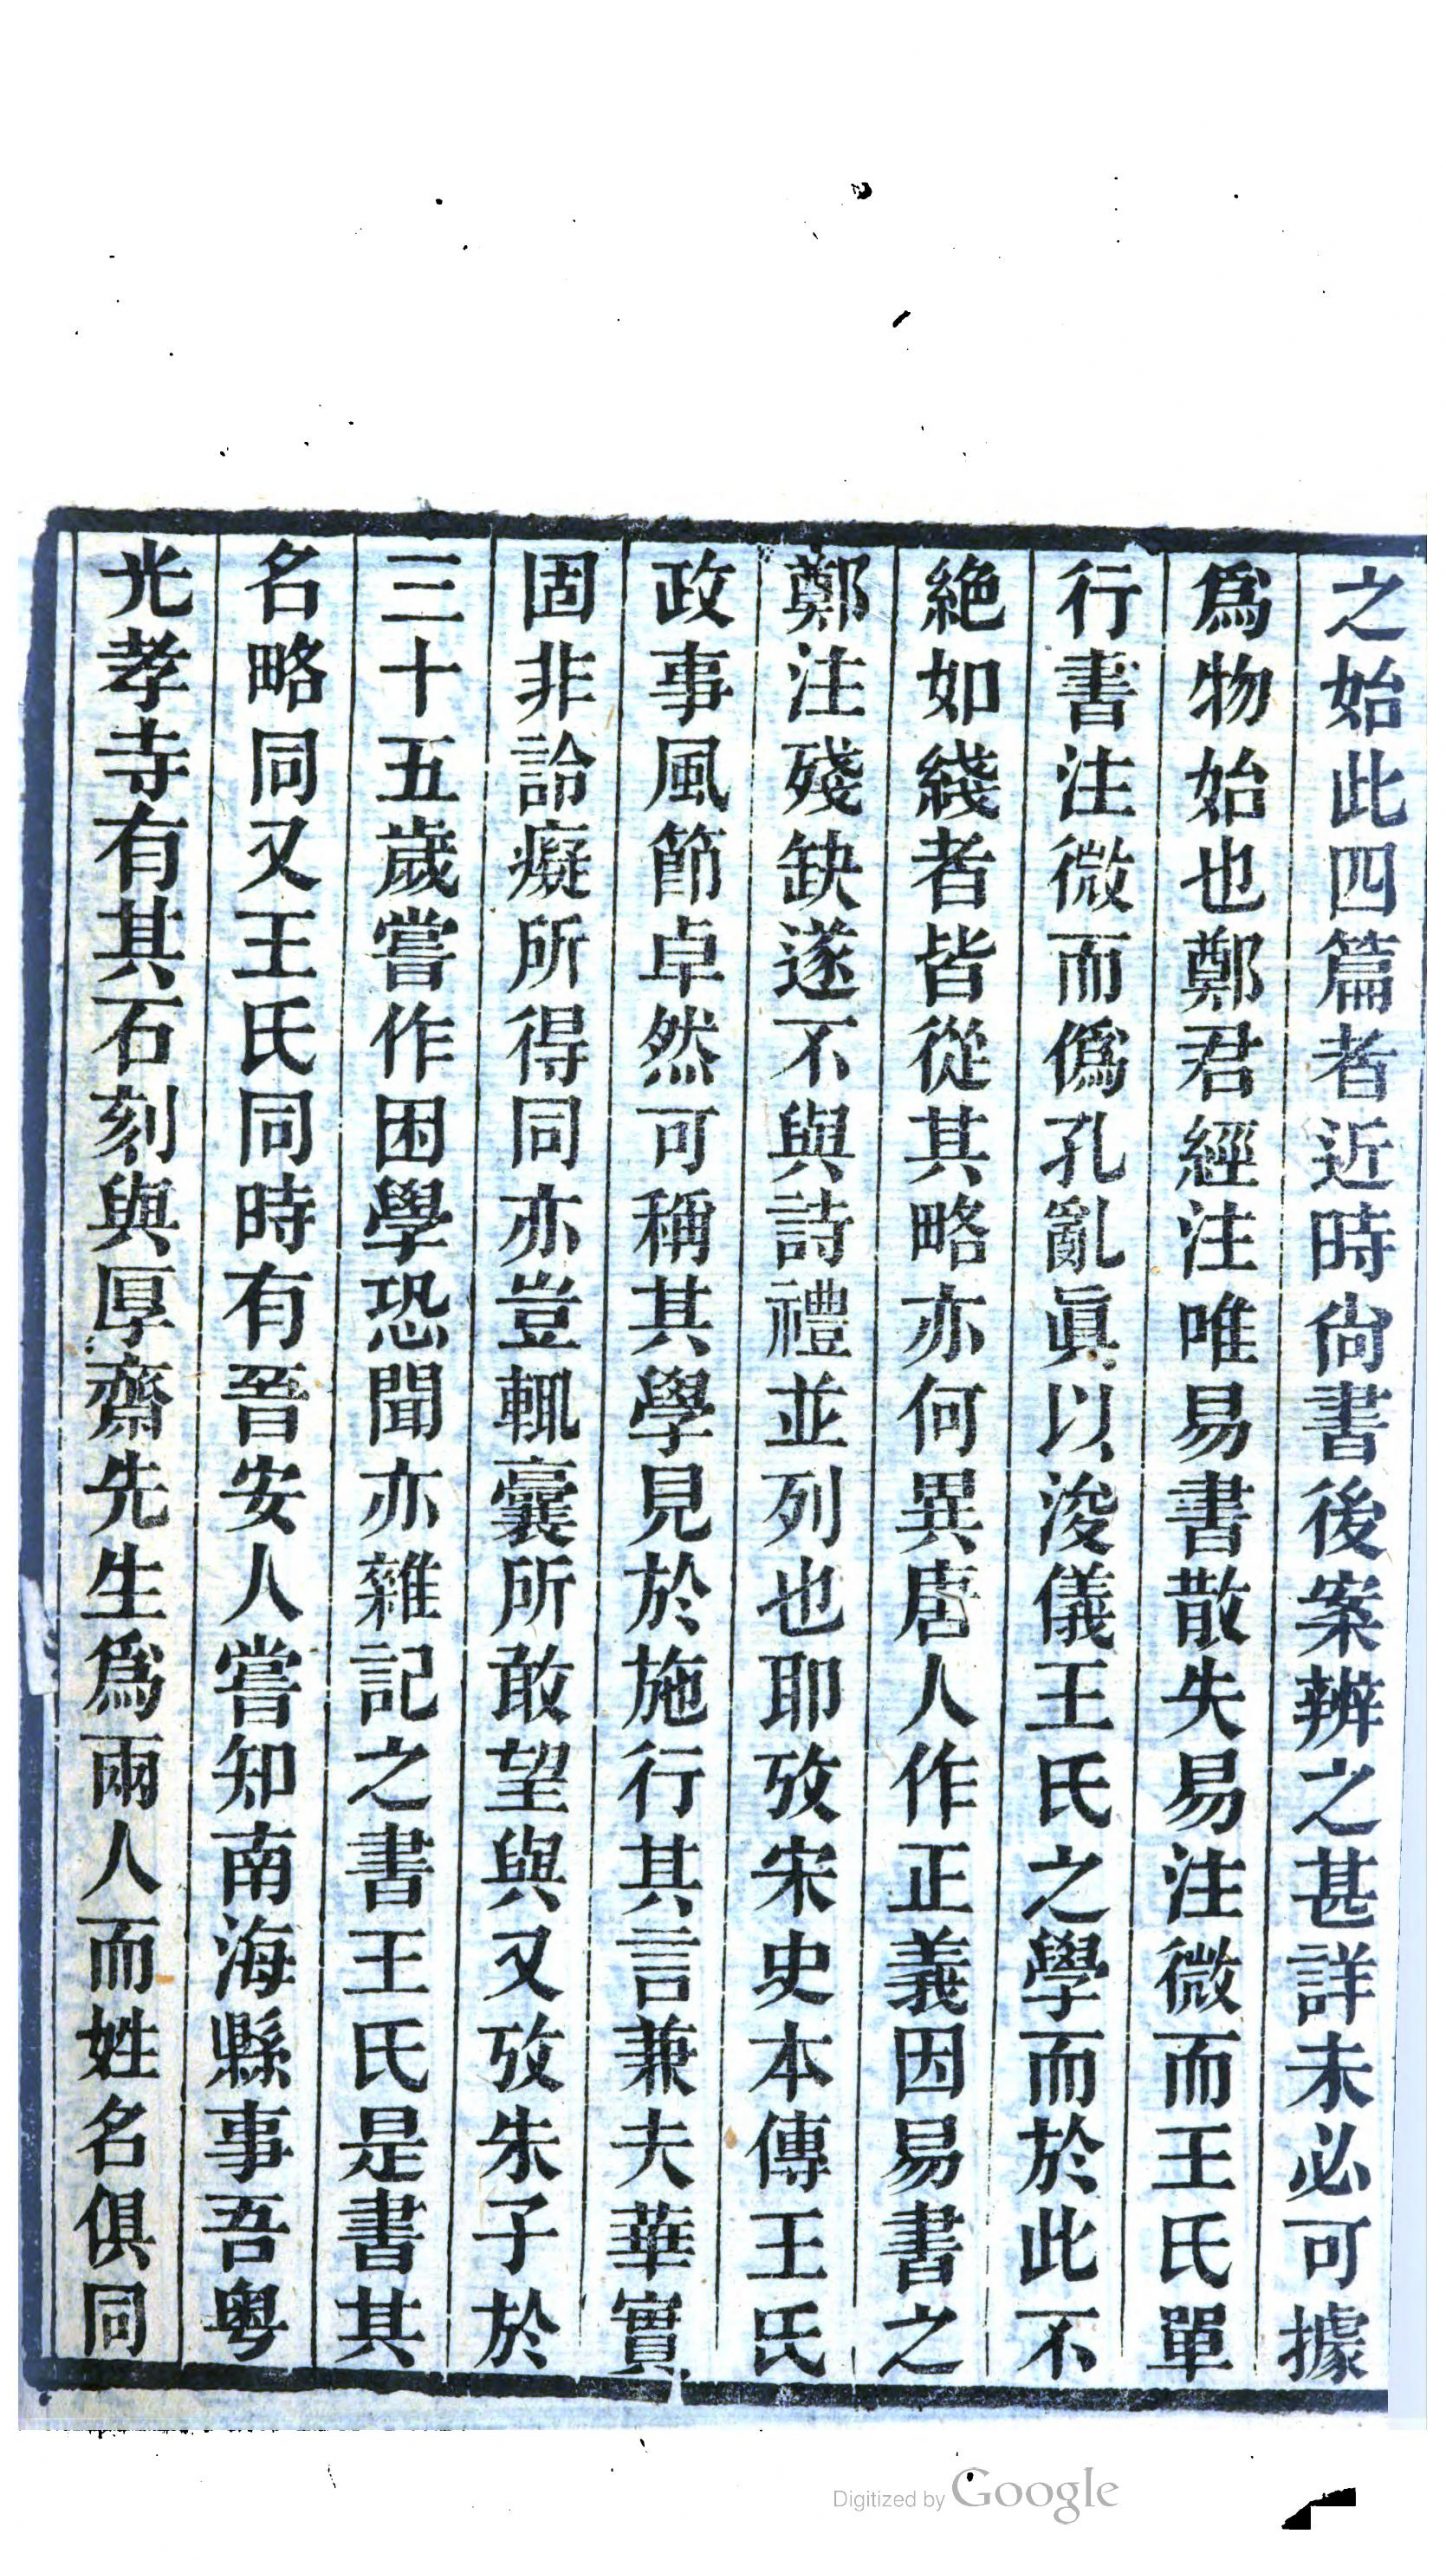 之始此四篇者近時尙書後案辨之甚詳未必可據
爲物始也鄭君經注唯易書散失易注微而王氏單
行書注微而僞孔亂眞以浚儀王氏之學而於此不
絶如綫者皆從其略亦何異唐人作正義因易書之
鄭注殘缺遂不與詩禮並列也耶攷宋史本傳王氏
政事風節卓然可稱其學見於施行其言兼夫華實
固非詅癡所得同亦豈輒曩所敢望與又攷朱子於
三十五歲嘗作困學恐聞亦雜記之書王氏是書其
名略同又王氏同時有晉安人嘗知南海縣事吾粵
光孝寺有其石刻與厚齋先生爲兩人而姓名俱同
Digitized by Google